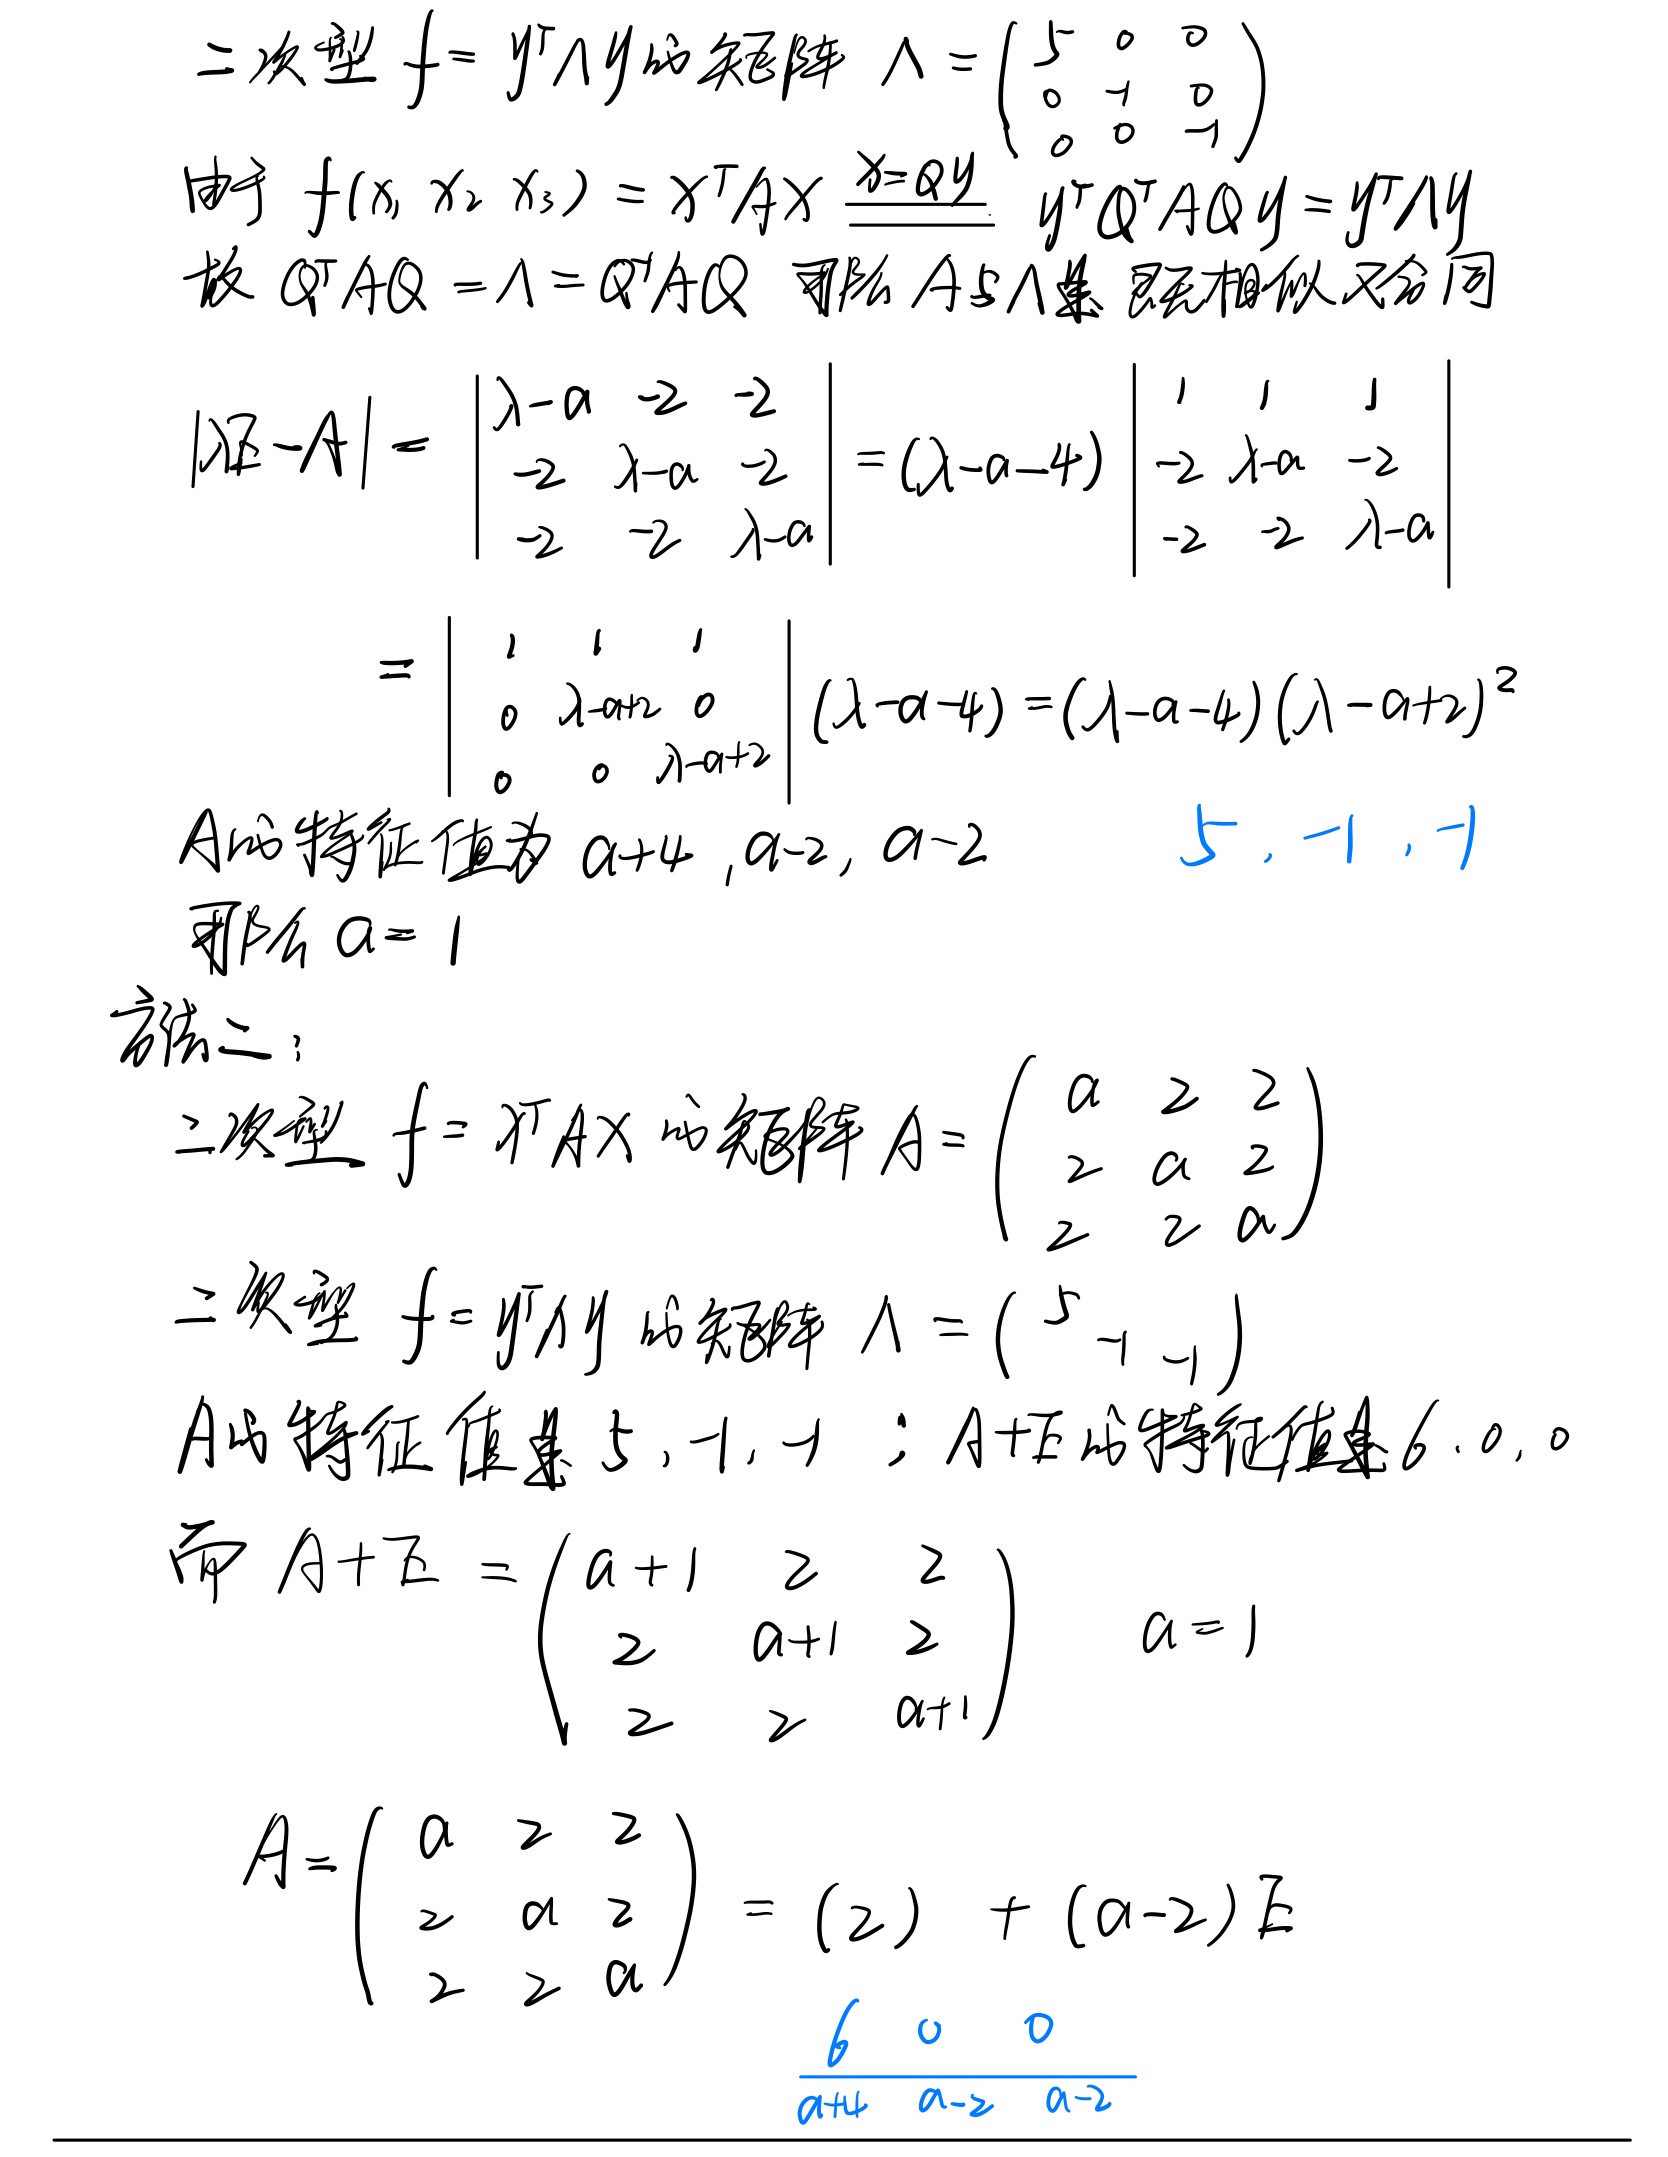 二次型 f = yᵀΛy的矩阵 Λ = (5 0 0
0 -1 0
0 0 -1)
由于 f(x₁ x₂ x₃) = xᵀAx x=Qy yᵀQᵀAQy = yᵀΛy
故 QᵀAQ = Λ = Q⁻¹AQ 那么 A与Λ是 既相似又合同
|λE-A| = |λ-a -2 -2
-2 λ-a -2
-2 -2 λ-a| = (λ-a-4) |1 1 1
-2 λ-a -2
-2 -2 λ-a|
= |1 1 1
0 λ-a+2 0
0 0 λ-a+2| (λ-a-4) = (λ-a-4)(λ-a+2)²
A的特征值为 a+4, a-2, a-2 5, -1, -1
那么 a = 1
方法二:
二次型 f = xᵀAx 的矩阵 A = (a 2 2
2 a 2
2 2 a)
二次型 f = yᵀΛy 的矩阵 Λ = (5 -1 -1)
A的特征值是 5, -1, -1 ; A+E的特征值是 6, 0, 0
而 A+E = (a+1 2 2
2 a+1 2
2 2 a+1) a = 1
A = (a 2 2
2 a 2
2 2 a) = (2) + (a-2)E
6 0 0
a+4 a-2 a-2